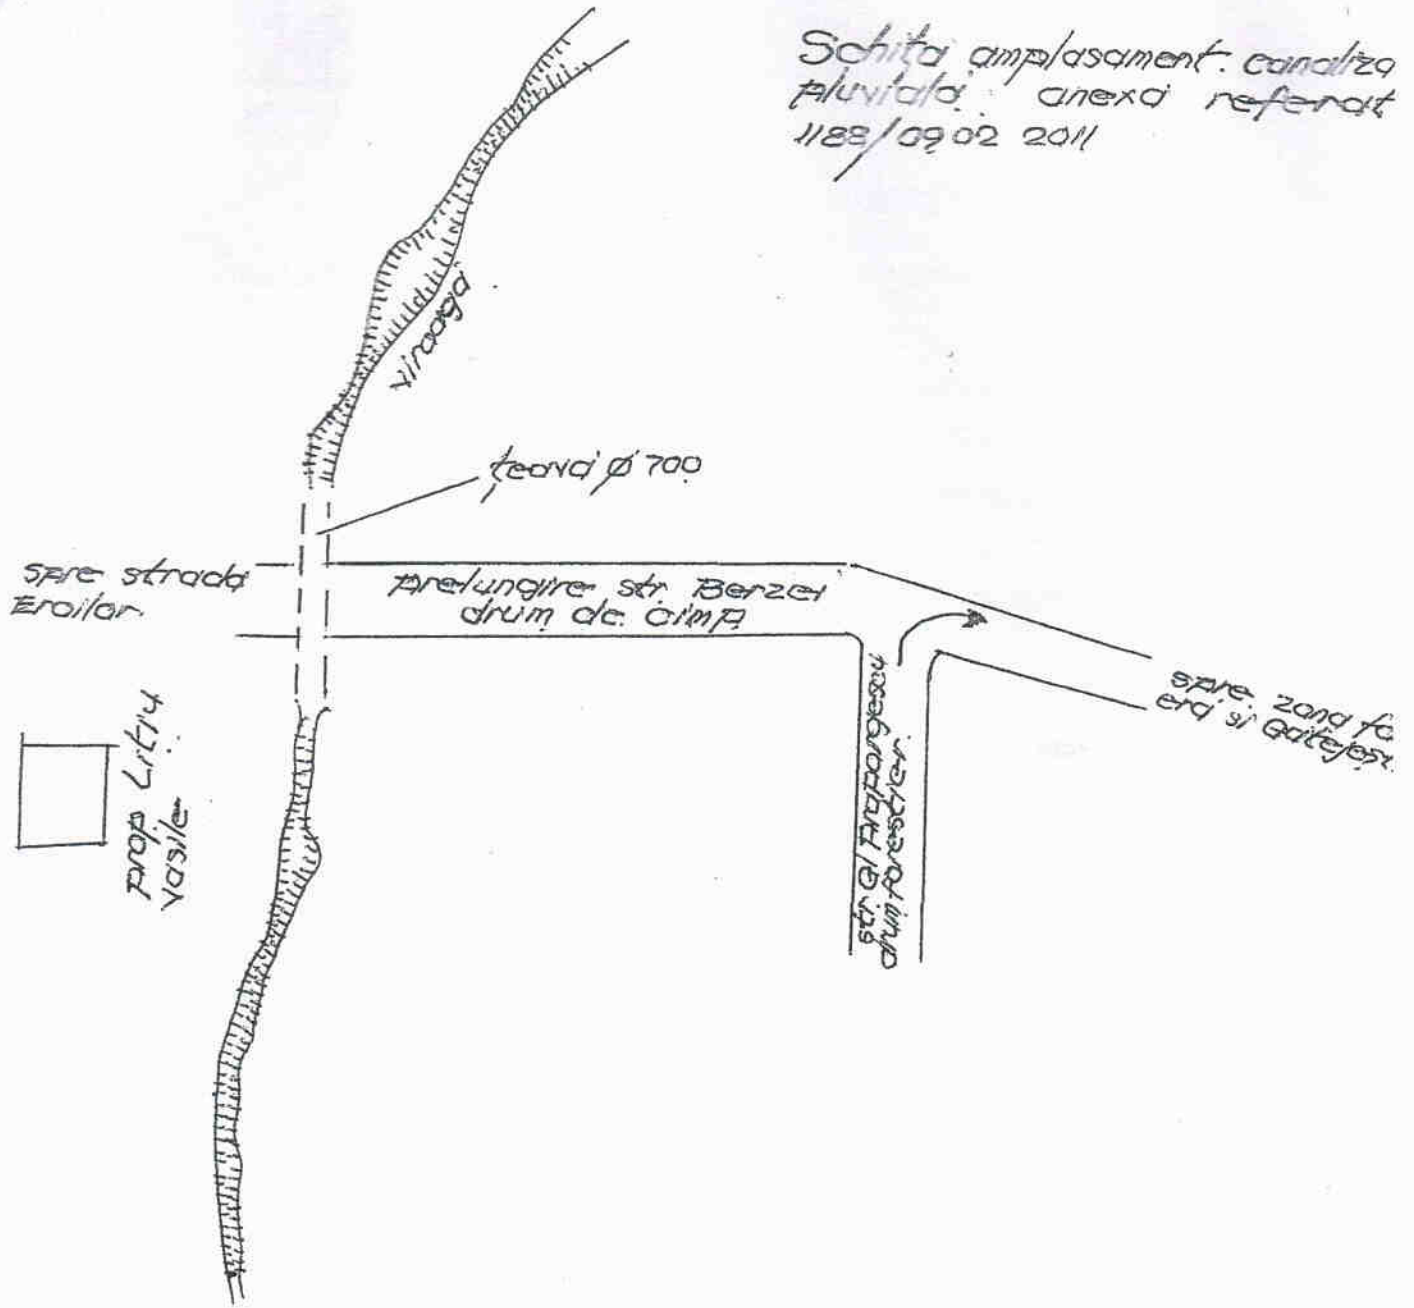 Schița amplasament canaliza
pluvială anexă referat
1188/09.02 2011
viroagă
țeavă Ø 700
spre strada
Eroilor
prelungire str. Berzei
drum de cîmp
spre zona fo
eră și
prop Litriu
Vasile
str. G1